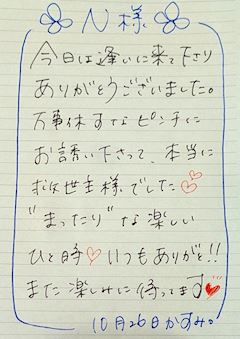 N様
今日は逢いに来て下さり
ありがとうございました。
万事休すなピンチに
お誘い下さって、本当に
救世主様でした♡♡
"まったり"な楽しい
ひと時♡いつもありがと!!
また楽しみに待ってます♡
10月26日かすみ。